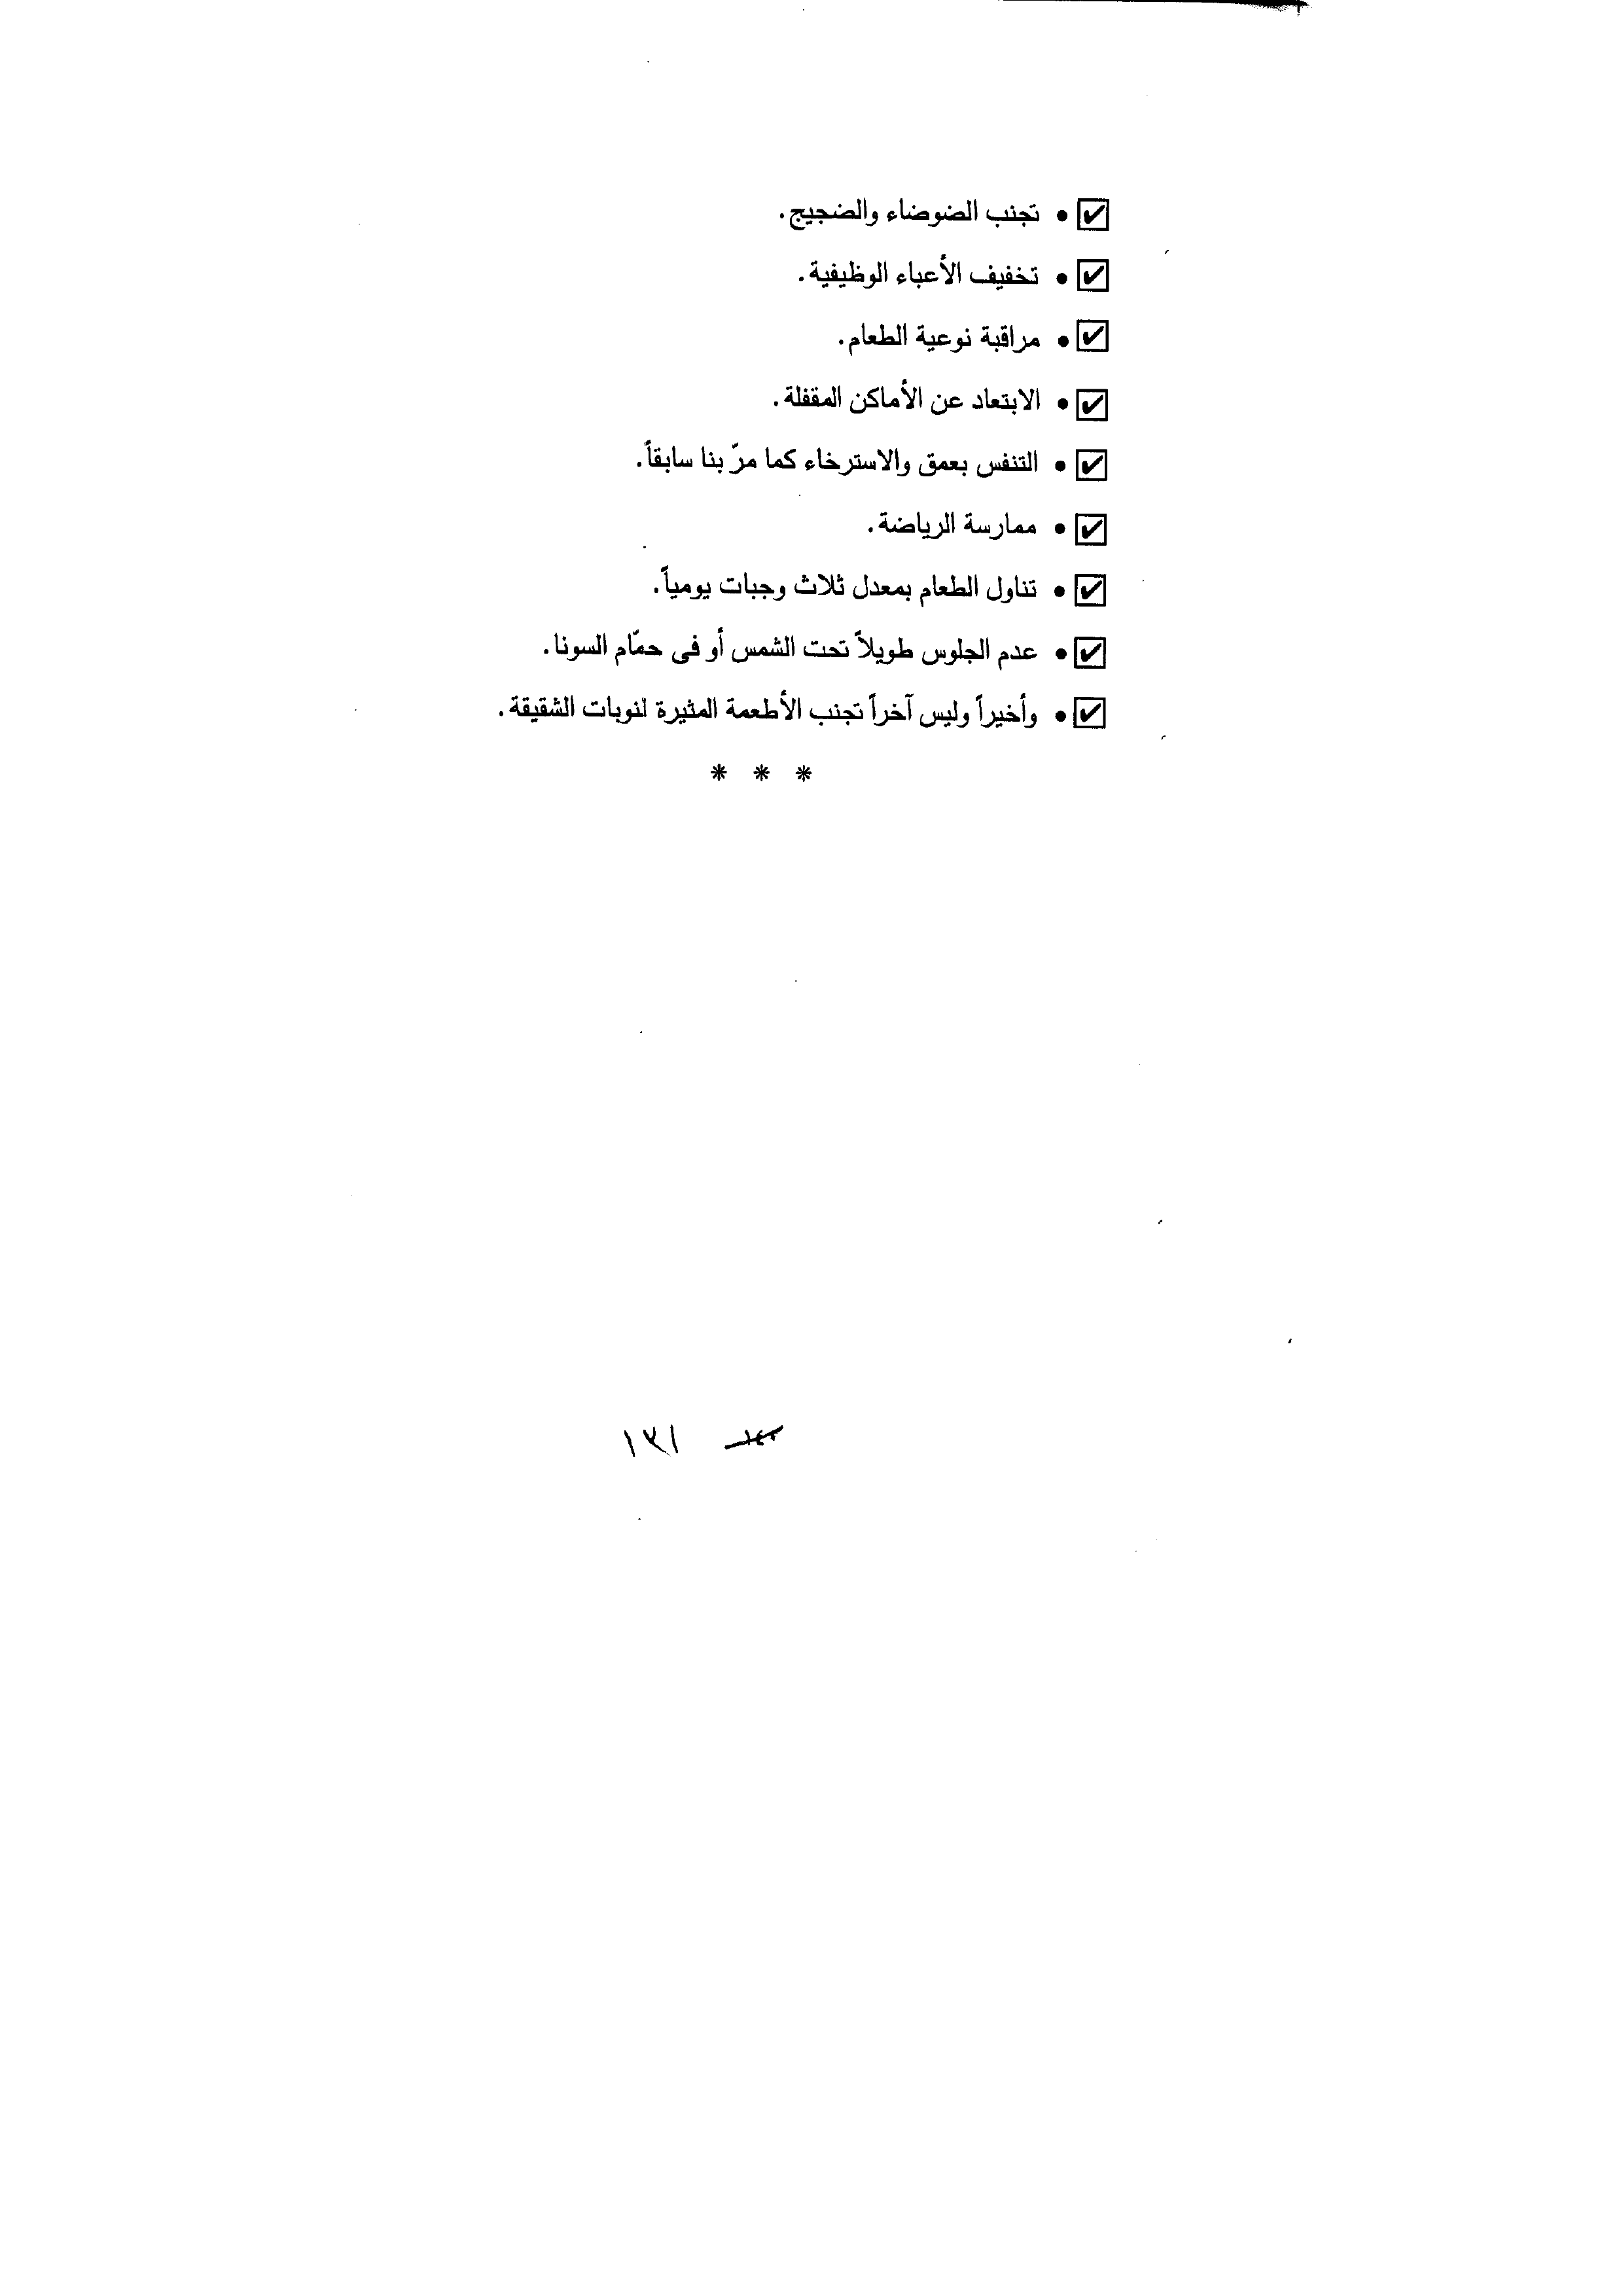 ☑ • تجنب الضوضاء والضجيج.
☑ • تخفيف الأعباء الوظيفية.
☑ • مراقبة نوعية الطعام.
☑ • الابتعاد عن الأماكن المقفلة.
☑ • التنفس بعمق والاسترخاء كما مرّ بنا سابقاً.
☑ • ممارسة الرياضة.
☑ • تناول الطعام بمعدل ثلاث وجبات يومياً.
☑ • عدم الجلوس طويلاً تحت الشمس أو فى حمّام السونا.
☑ • وأخيراً وليس آخراً تجنب الأطعمة المثيرة لنوبات الشقيقة.
* * *
١٣١